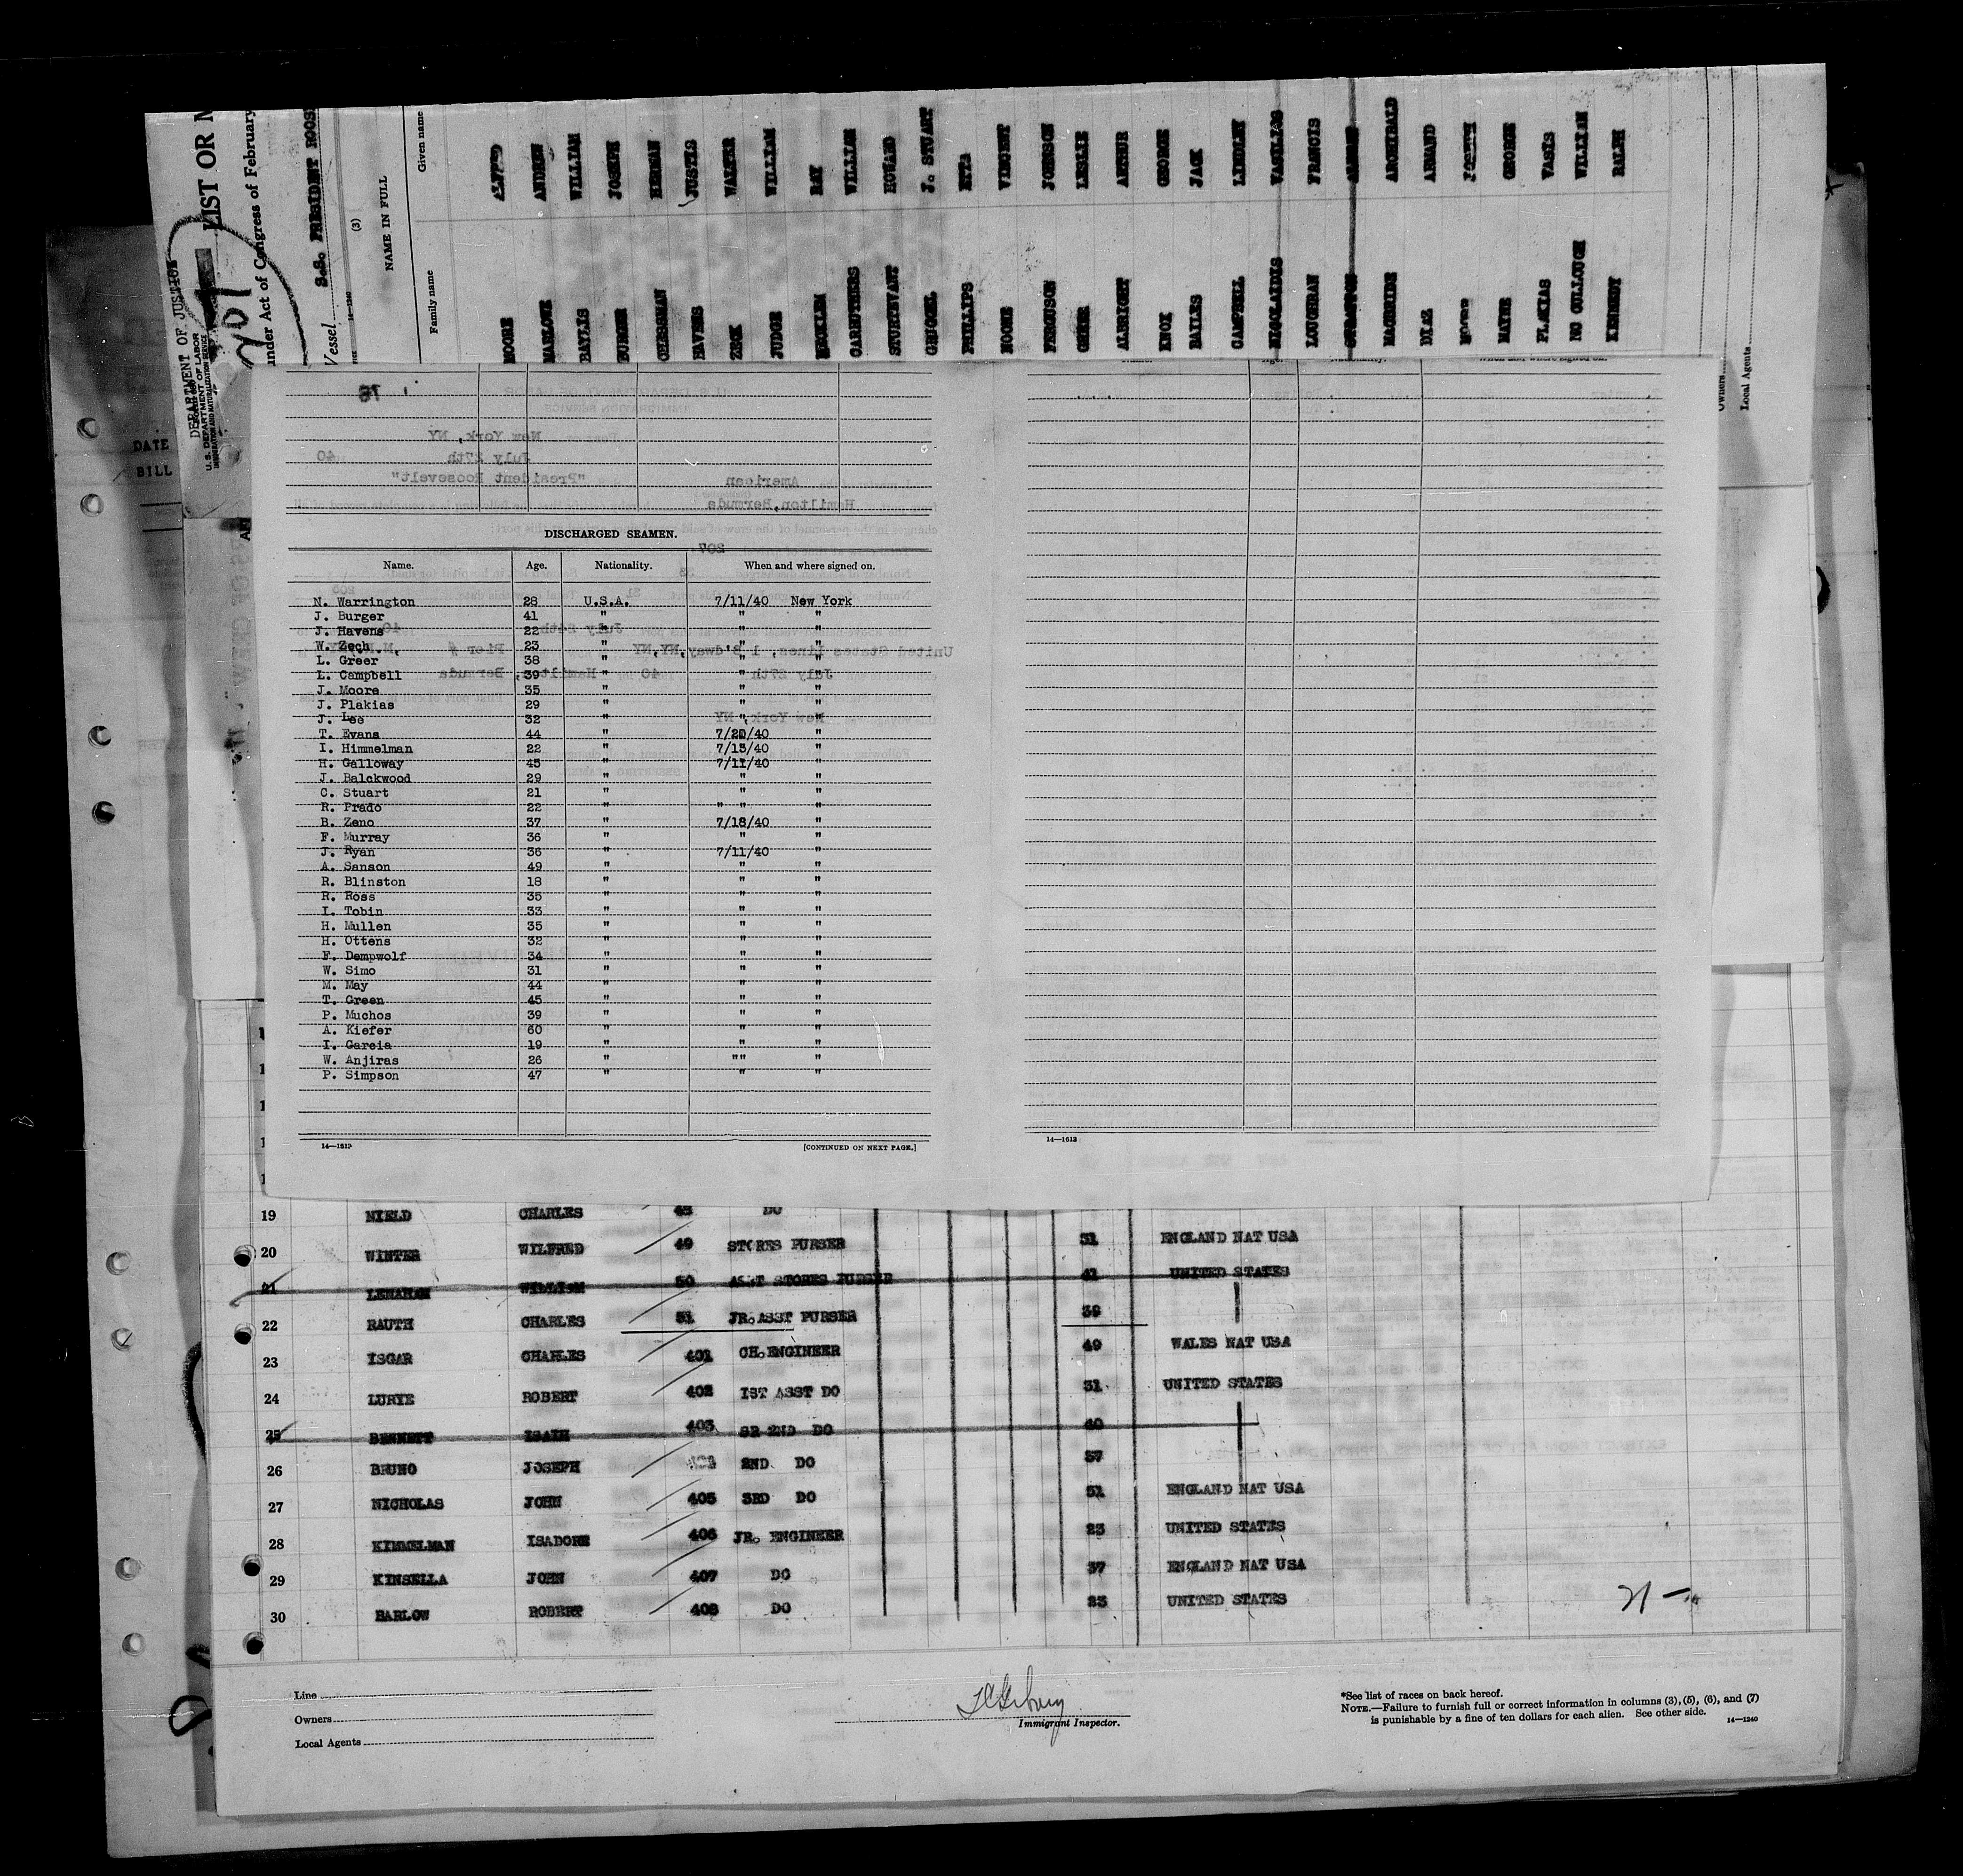 DISCHARGED SEAMEN.
Name. Age. Nationality. When and where signed on.
N. Warrington 28 U.S.A. 7/11/40 New York
J. Burger 41 " " "
J. Havens 22 " " "
W. Zech 23 " " "
L. Greer 38 " " "
L. Campbell 39 " " "
J. Moore 35 " " "
J. Plakias 29 " " "
J. Lee 32 " " "
T. Evans 44 " 7/20/40 "
I. Himmelman 22 " 7/15/40 "
H. Galloway 45 " 7/11/40 "
J. Balckwood 29 " " "
C. Stuart 21 " " "
R. Prado 22 " " " "
B. Zeno 37 " 7/18/40 "
F. Murray 36 " " "
J. Ryan 36 " 7/11/40 "
A. Sanson 49 " " "
R. Blinston 18 " " "
R. Ross 35 " " "
I. Tobin 33 " " "
H. Mullen 35 " " "
H. Ottens 32 " " "
F. Dempwolf 34 " " "
W. Simo 31 " " "
M. May 44 " " "
T. Green 45 " " "
P. Muchos 39 " " "
A. Kiefer 60 " " "
I. Garcia 19 " " "
W. Anjiras 26 " "" "
P. Simpson 47 " " "
[CONTINUED ON NEXT PAGE.]
DATE
BILL
DEPARTMENT OF JUSTICE
U. S. DEPARTMENT OF LABOR
IMMIGRATION AND NATURALIZATION SERVICE
LIST OR
under Act of Congress of February
Vessel S.S. PRESIDENT ROOS
(3)
NAME IN FULL
Family name Given name
MOORE ALFRED
MARLOWE ANDREW
BAYLIS WILLIAM
BURGER JOSEPH
HERMAN
HAVENS JUSTUS
ZECK WALTER
JUDGE WILLIAM
RAY
CARRUTHERS WILLIAM
STURTEVANT HOWARD
J. STUART
PHILLIPS
MOORE VINCENT
FERGUSON JOHNSON
GREER LESLIE
ALBRIGHT ARTHUR
KNOX GEORGE
BAILES JACK
CAMPBELL LINDLEY
NICOLAIDIS VASILIAS
LOUGHRAN FRANCIS
MACBRIDE ARCHIBALD
DIAZ ARMAND
JOSEPH
MAYER GEORGE
PLAKIAS VASIS
MC CULLOUGH WILLIAM
KENNEDY RALPH
Owners
Local Agents
19 NIELD CHARLES 45 DO
20 WINTER WILFRED 49 STORES PURSER 31 ENGLAND NAT USA
21 LENAHAN WILLIAM 50 ASST STORES PURSER 41 UNITED STATES
22 RAUTH CHARLES 51 JR. ASST PURSER 38
23 ISGAR CHARLES 401 CH. ENGINEER 49 WALES NAT USA
24 LURYE ROBERT 402 IST ASST DO 31 UNITED STATES
25 BENNETT ISAIH 403 SR 2ND DO 40
26 BRUNO JOSEPH 2ND DO 37
27 NICHOLAS JOHN 405 3RD DO 51 ENGLAND NAT USA
28 KIMMELMAN ISADORE 406 JR. ENGINEER 23 UNITED STATES
29 KINSELLA JOHN 407 DO 37 ENGLAND NAT USA
30 BARLOW ROBERT 408 DO 23 UNITED STATES
21
Line
Owners
Local Agents
Immigrant Inspector.
*See list of races on back hereof.
NOTE.—Failure to furnish full or correct information in columns (3), (5), (6), and (7)
is punishable by a fine of ten dollars for each alien. See other side. 14—1240